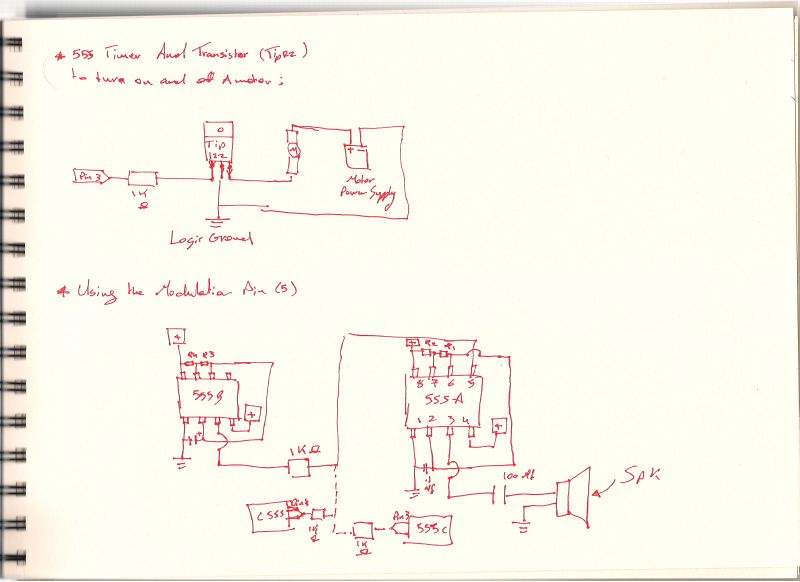 * 555 Timer And Transistor (Tip22)
to turn on and off A motor:
0
Tip
122
Pin 3
1K
Ω
M
+ -
Motor
Power Supply
Logic Ground
* Using the Modulation Pin (5)
+
R4 R3
555 B
+
+
1K Ω
+
R2 R1
8 7 6 5
555-A
1 2 3 4
+
.1
Mf
100 Mf
SPK
C 555
1K
Ω
Pin 3
555 C
1K
Ω